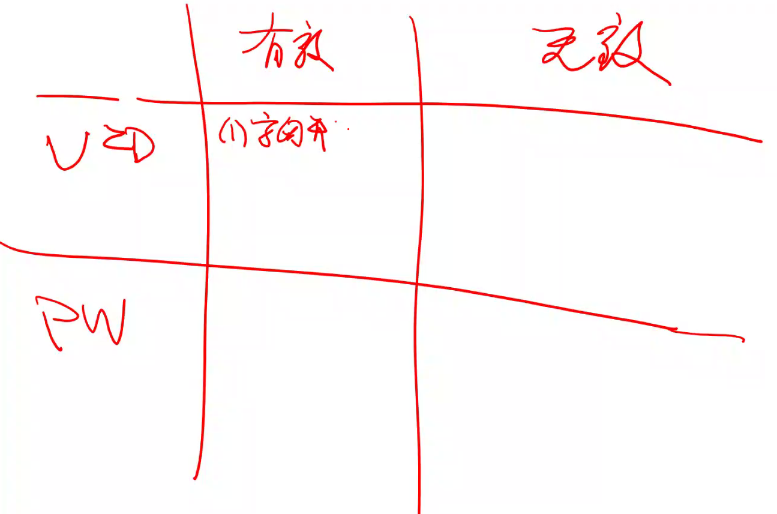 有效 无效
UID
(1)字母开
PW